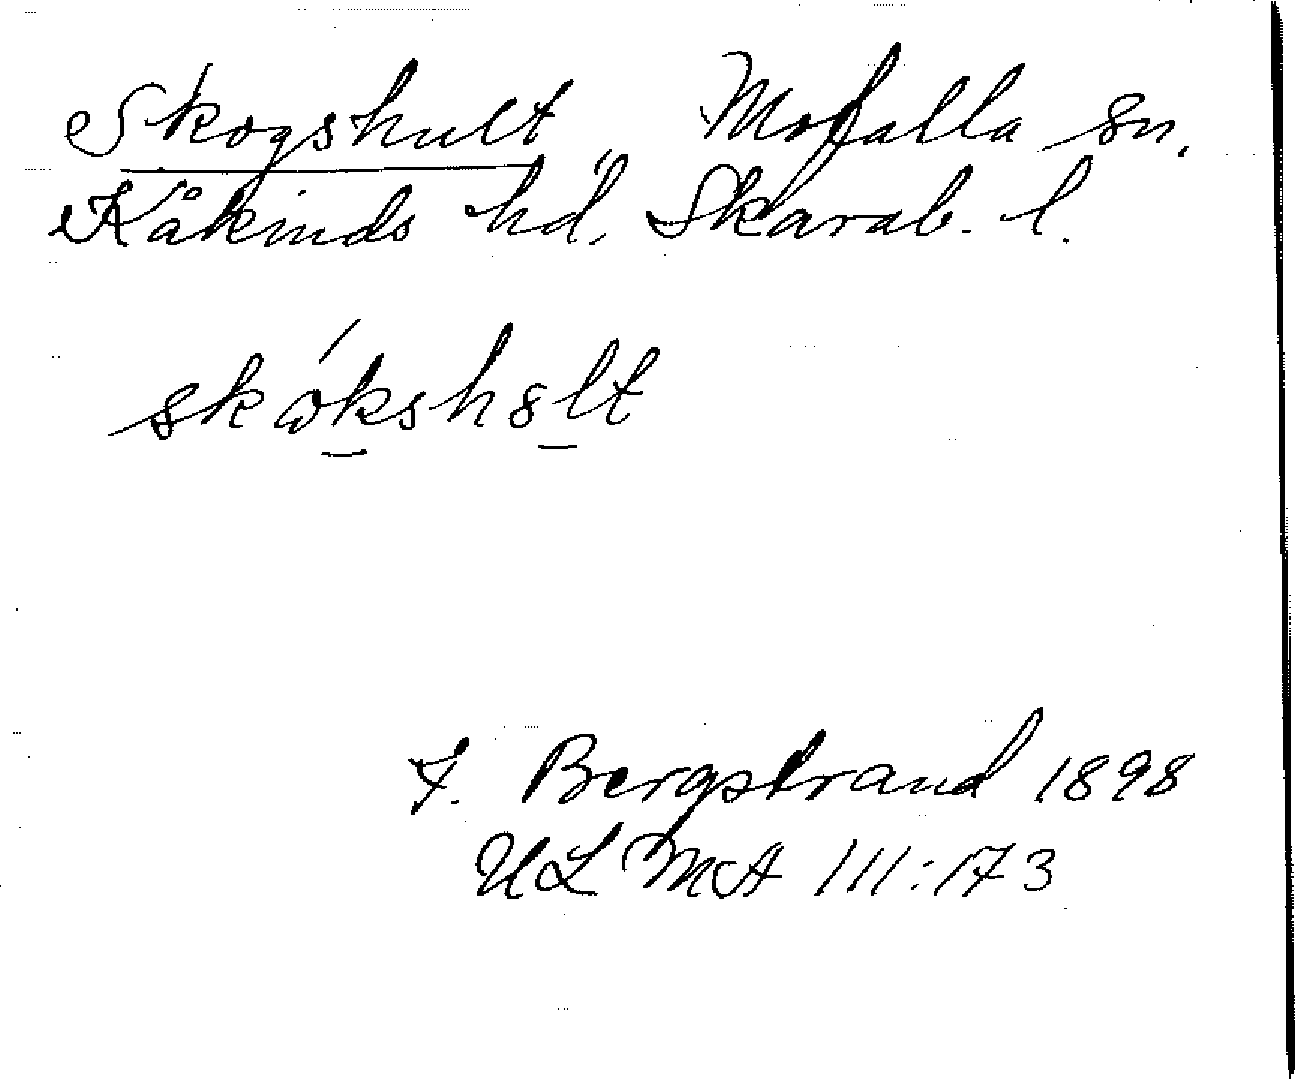 Skogshult, Mofalla sn.
Kåkinds hd, Skarab. l.
skókshɷlt
F. Bergstrand 1898
ULMA 111:173